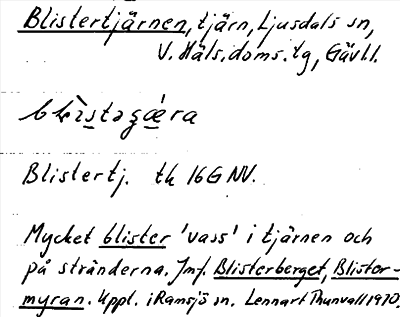 Blistertjärnen, tjärn, Ljusdals sn,
V. Häls. doms. tg, Gävl l.
Blistertj. tk 16G NV.
Mycket blister 'vass' i tjärnen och
på stränderna. Jmf. Blisterberget, Blister-
myran. Uppl. i Ramsjö sn. Lennart Thunvall 1970.